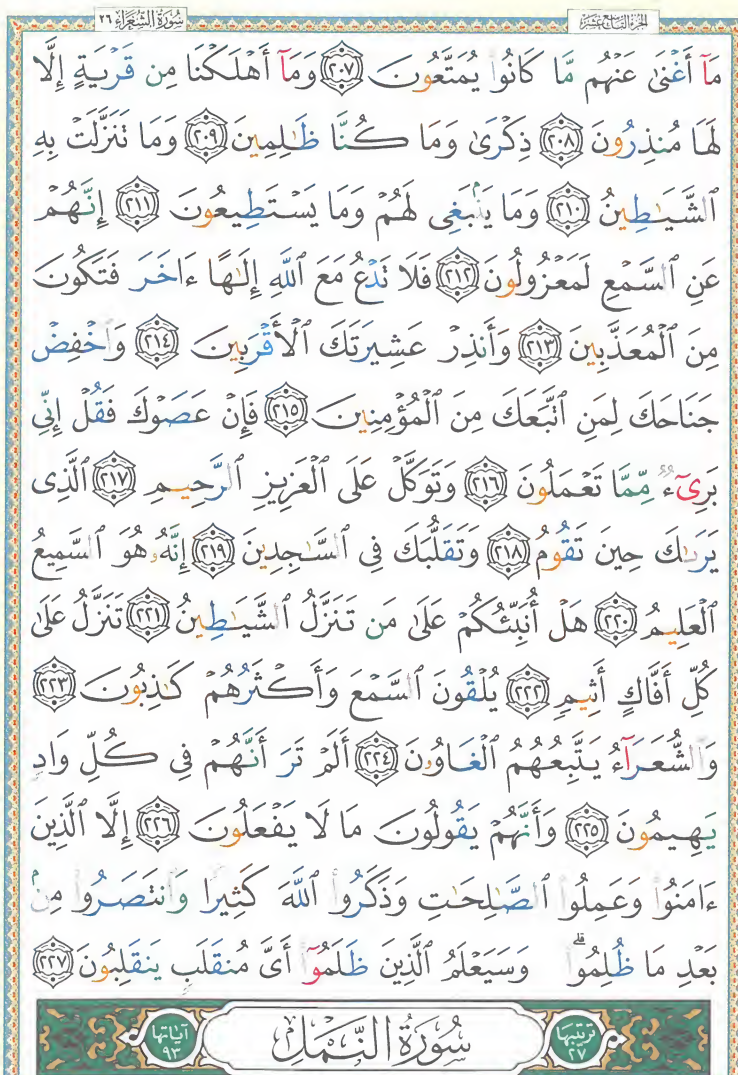 سُورَةُ الشُّعَرَاءِ ٢٦ الجزء التاسع عشر
مَآ أَغْنَىٰ عَنْهُم مَّا كَانُوا۟ يُمَتَّعُونَ ﴿٢٠٧﴾ وَمَآ أَهْلَكْنَا مِن قَرْيَةٍ إِلَّا
لَهَا مُنذِرُونَ ﴿٢٠٨﴾ ذِكْرَىٰ وَمَا كُنَّا ظَـٰلِمِينَ ﴿٢٠٩﴾ وَمَا تَنَزَّلَتْ بِهِ
ٱلشَّيَـٰطِينُ ﴿٢١٠﴾ وَمَا يَنۢبَغِى لَهُمْ وَمَا يَسْتَطِيعُونَ ﴿٢١١﴾ إِنَّهُمْ
عَنِ ٱلسَّمْعِ لَمَعْزُولُونَ ﴿٢١٢﴾ فَلَا تَدْعُ مَعَ ٱللَّهِ إِلَـٰهًا ءَاخَرَ فَتَكُونَ
مِنَ ٱلْمُعَذَّبِينَ ﴿٢١٣﴾ وَأَنذِرْ عَشِيرَتَكَ ٱلْأَقْرَبِينَ ﴿٢١٤﴾ وَٱخْفِضْ
جَنَاحَكَ لِمَنِ ٱتَّبَعَكَ مِنَ ٱلْمُؤْمِنِينَ ﴿٢١٥﴾ فَإِنْ عَصَوْكَ فَقُلْ إِنِّى
بَرِىٓءٌ مِّمَّا تَعْمَلُونَ ﴿٢١٦﴾ وَتَوَكَّلْ عَلَى ٱلْعَزِيزِ ٱلرَّحِيمِ ﴿٢١٧﴾ ٱلَّذِى
يَرَىٰكَ حِينَ تَقُومُ ﴿٢١٨﴾ وَتَقَلُّبَكَ فِى ٱلسَّـٰجِدِينَ ﴿٢١٩﴾ إِنَّهُۥ هُوَ ٱلسَّمِيعُ
ٱلْعَلِيمُ ﴿٢٢٠﴾ هَلْ أُنَبِّئُكُمْ عَلَىٰ مَن تَنَزَّلُ ٱلشَّيَـٰطِينُ ﴿٢٢١﴾ تَنَزَّلُ عَلَىٰ
كُلِّ أَفَّاكٍ أَثِيمٍ ﴿٢٢٢﴾ يُلْقُونَ ٱلسَّمْعَ وَأَكْثَرُهُمْ كَـٰذِبُونَ ﴿٢٢٣﴾
وَٱلشُّعَرَآءُ يَتَّبِعُهُمُ ٱلْغَاوُۥنَ ﴿٢٢٤﴾ أَلَمْ تَرَ أَنَّهُمْ فِى كُلِّ وَادٍ
يَهِيمُونَ ﴿٢٢٥﴾ وَأَنَّهُمْ يَقُولُونَ مَا لَا يَفْعَلُونَ ﴿٢٢٦﴾ إِلَّا ٱلَّذِينَ
ءَامَنُوا۟ وَعَمِلُوا۟ ٱلصَّـٰلِحَـٰتِ وَذَكَرُوا۟ ٱللَّهَ كَثِيرًا وَٱنتَصَرُوا۟ مِنۢ
بَعْدِ مَا ظُلِمُوا۟ ۗ وَسَيَعْلَمُ ٱلَّذِينَ ظَلَمُوٓا۟ أَىَّ مُنقَلَبٍ يَنقَلِبُونَ ﴿٢٢٧﴾
ترتيبها ٢٧ سُورَةُ النَّمْلِ آياتها ٩٣